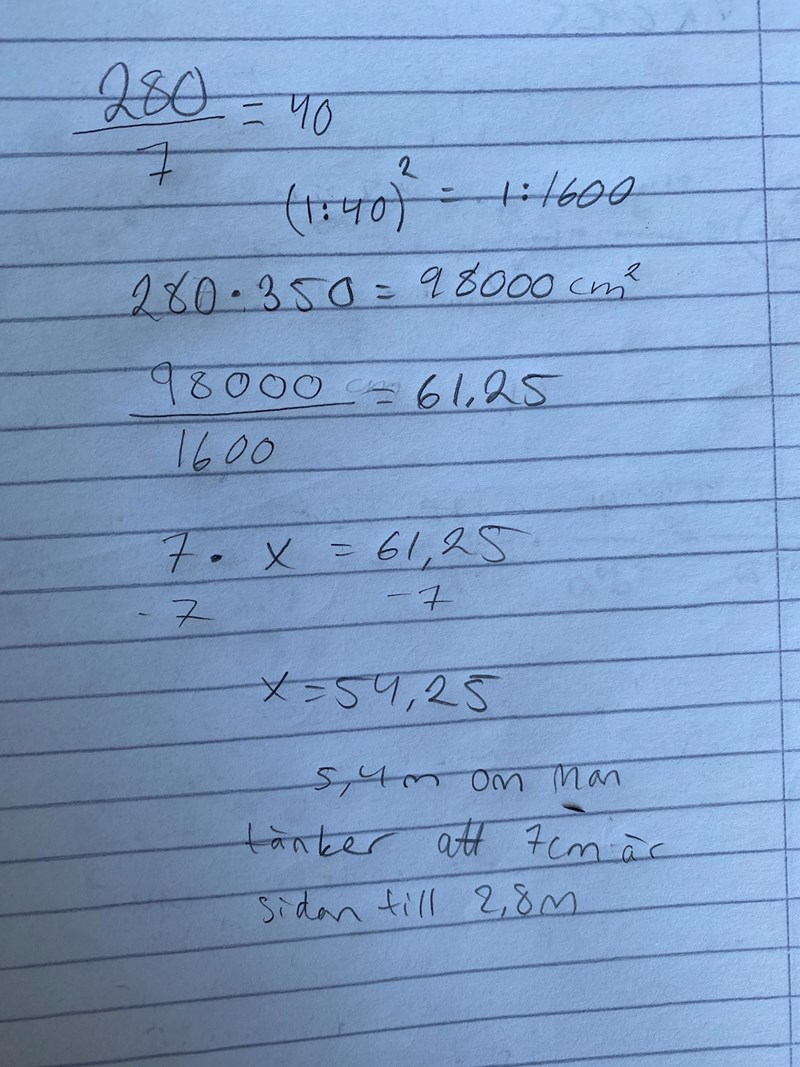 280/7 = 40
(1:40)² = 1:1600
280 · 350 = 98000 cm²
98000/1600 = 61,25
7 · x = 61,25
-7 -7
x = 54,25
5,4m om man
tänker att 7cm är
sidan till 2,8m